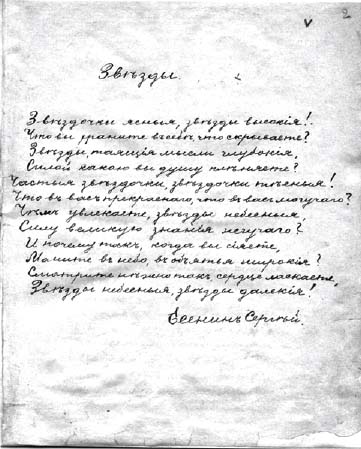 2
Звѣзды.
Звѣздочки ясныя, звѣзды высокія!
Что вы храните въ себѣ, что скрываете?
Звѣзды, таящія мысли глубокія,
Силой какою вы душу плѣняете?
Частыя звѣздочки, звѣздочки тѣсныя!
Что въ васъ прекраснаго, что въ васъ могучаго?
Чѣмъ увлекаете, звѣзды небесныя,
Силу великую знанья жгучаго?
И почему такъ, когда вы сіяете,
Маните въ небо, въ объятья широкія?
Смотрите нѣжно такъ, сердце ласкаете,
Звѣзды небесныя, звѣзды далекія!
Есенинъ Сергѣй.